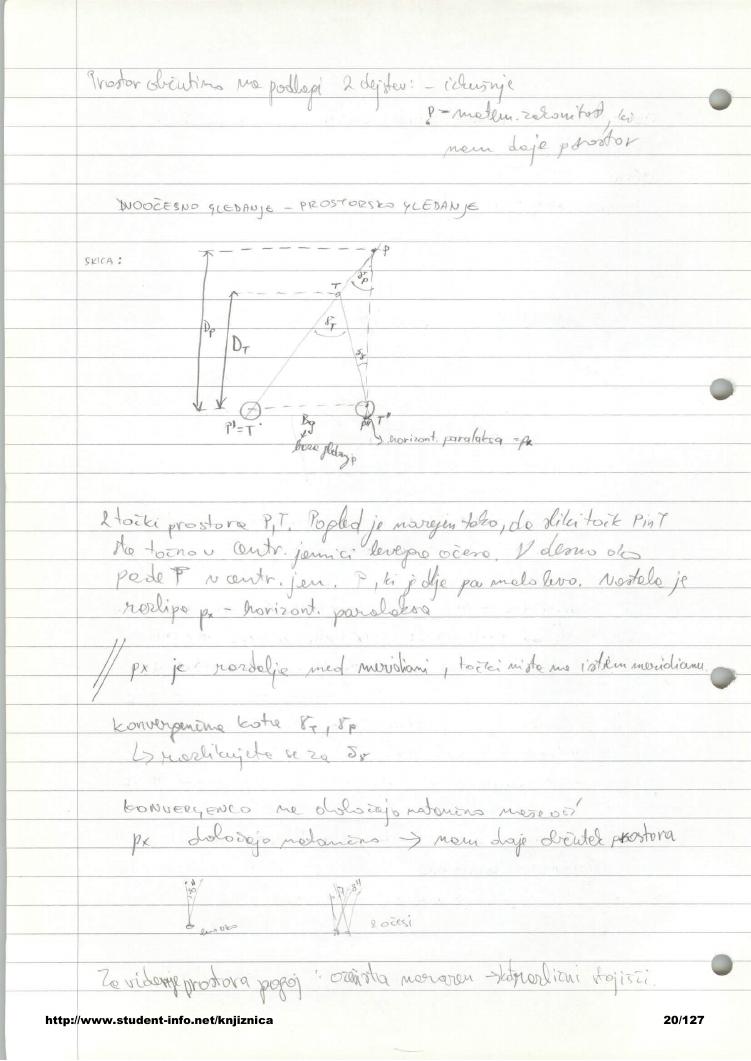 Prostor občutimo na podlagi 2 dejstev: - izkušnje
p - matem. zakonitost, ki
nam daje prostor
DVOOČESNO GLEDANJE - PROSTORSKO GLEDANJE
SKICA:
P
T
γP
γT
δγ
DP
DT
P'=T'
Bg
baza gledanja
P"
T"
horizont. paralaksa = px
2 točki prostora P, T. Pogled je usmerjen tako, da sliki točk P in T
sta točno v centr. jamici levega očesa. V desno oko
pade T v centr. jam. P, ki je dlje pa malo levo. Nastala je
razlika px - horizont. paralaksa
px je razdalja med meridiani, točki nista na istem meridianu
Konvergenčna kota γT, γP
↳ razlikujeta se za δγ
KONVERGENCO ne določajo natančno naše oči
px določajo natančno → nam daje občutek prostora
eno oko
2 očesi
Za videnje prostora pogoj :
stojišči.
http://www.student-info.net/knjiznica
20/127